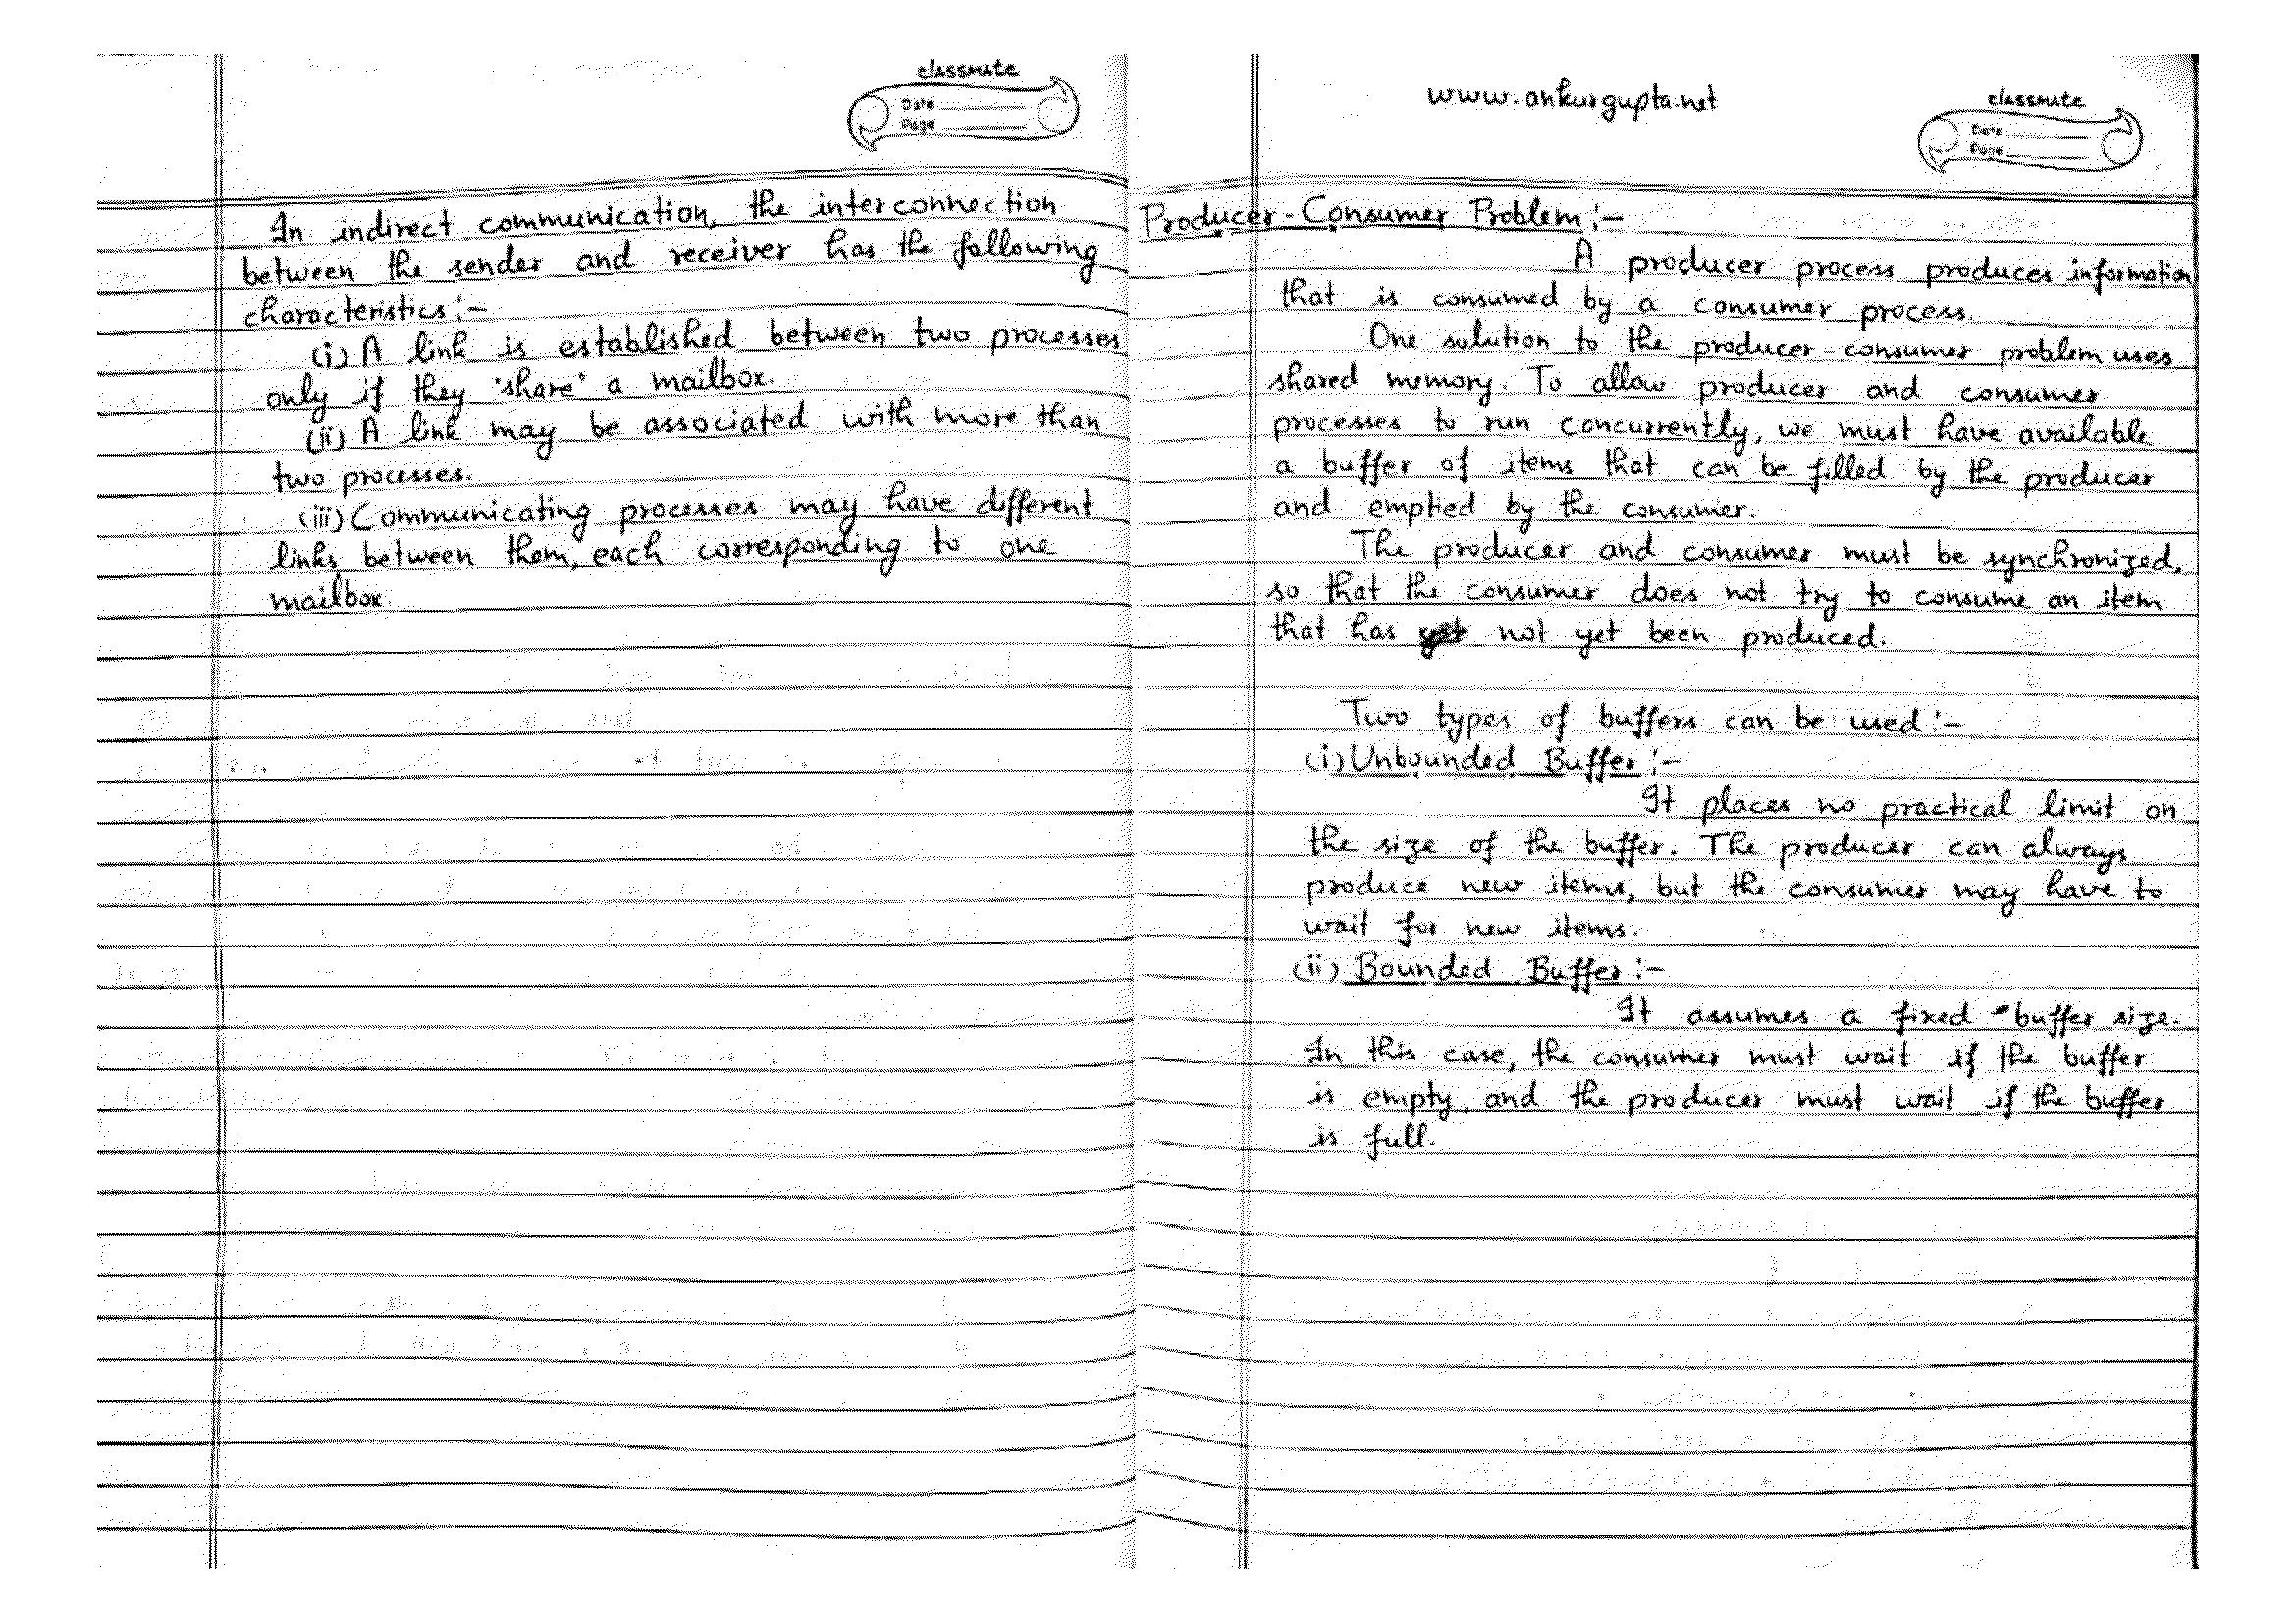 classmate
Date
Page
In indirect communication, the interconnection
between the sender and receiver has the following
characteristics:-
(i) A link is established between two processes
only if they 'share' a mailbox.
(ii) A link may be associated with more than
two processes.
(iii) Communicating processes may have different
links between them, each corresponding to one
mailbox.
www.ankurgupta.net
classmate
Date
Page
Producer-Consumer Problem:-
A producer process produces information
that is consumed by a consumer process.
One solution to the producer-consumer problem uses
shared memory. To allow producer and consumer
processes to run concurrently, we must have available
a buffer of items that can be filled by the producer
and emptied by the consumer.
The producer and consumer must be synchronized,
so that the consumer does not try to consume an item
that has not yet been produced.
Two types of buffers can be used:-
(i) Unbounded Buffer:-
It places no practical limit on
the size of the buffer. The producer can always
produce new items, but the consumer may have to
wait for new items.
(ii) Bounded Buffer:-
It assumes a fixed buffer size.
In this case, the consumer must wait if the buffer
is empty, and the producer must wait if the buffer
is full.